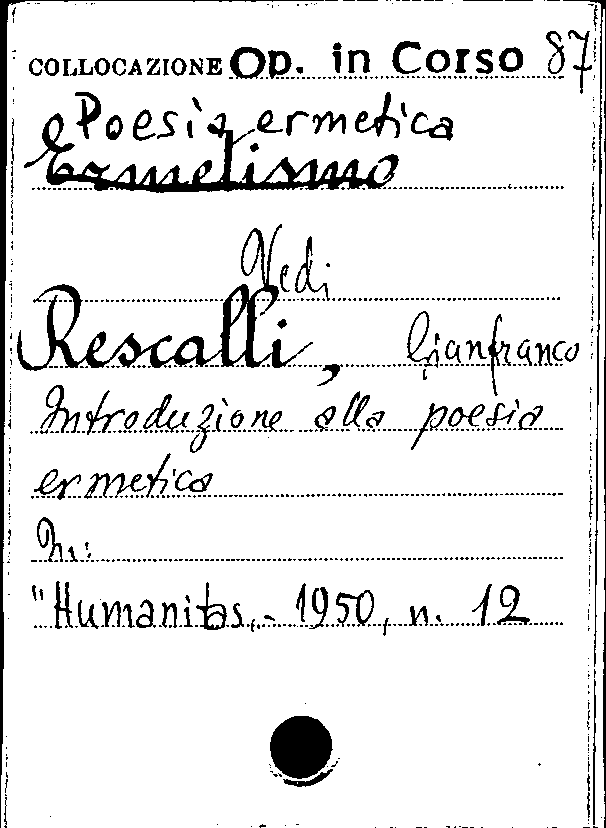 COLLOCAZIONE Op. in Corso 87
e Poesia ermetica
Ermetismo
Vedi
Rescalli, Gianfranco
Introduzione alla poesia
ermetica
In:
"Humanitas,- 1950, n. 12